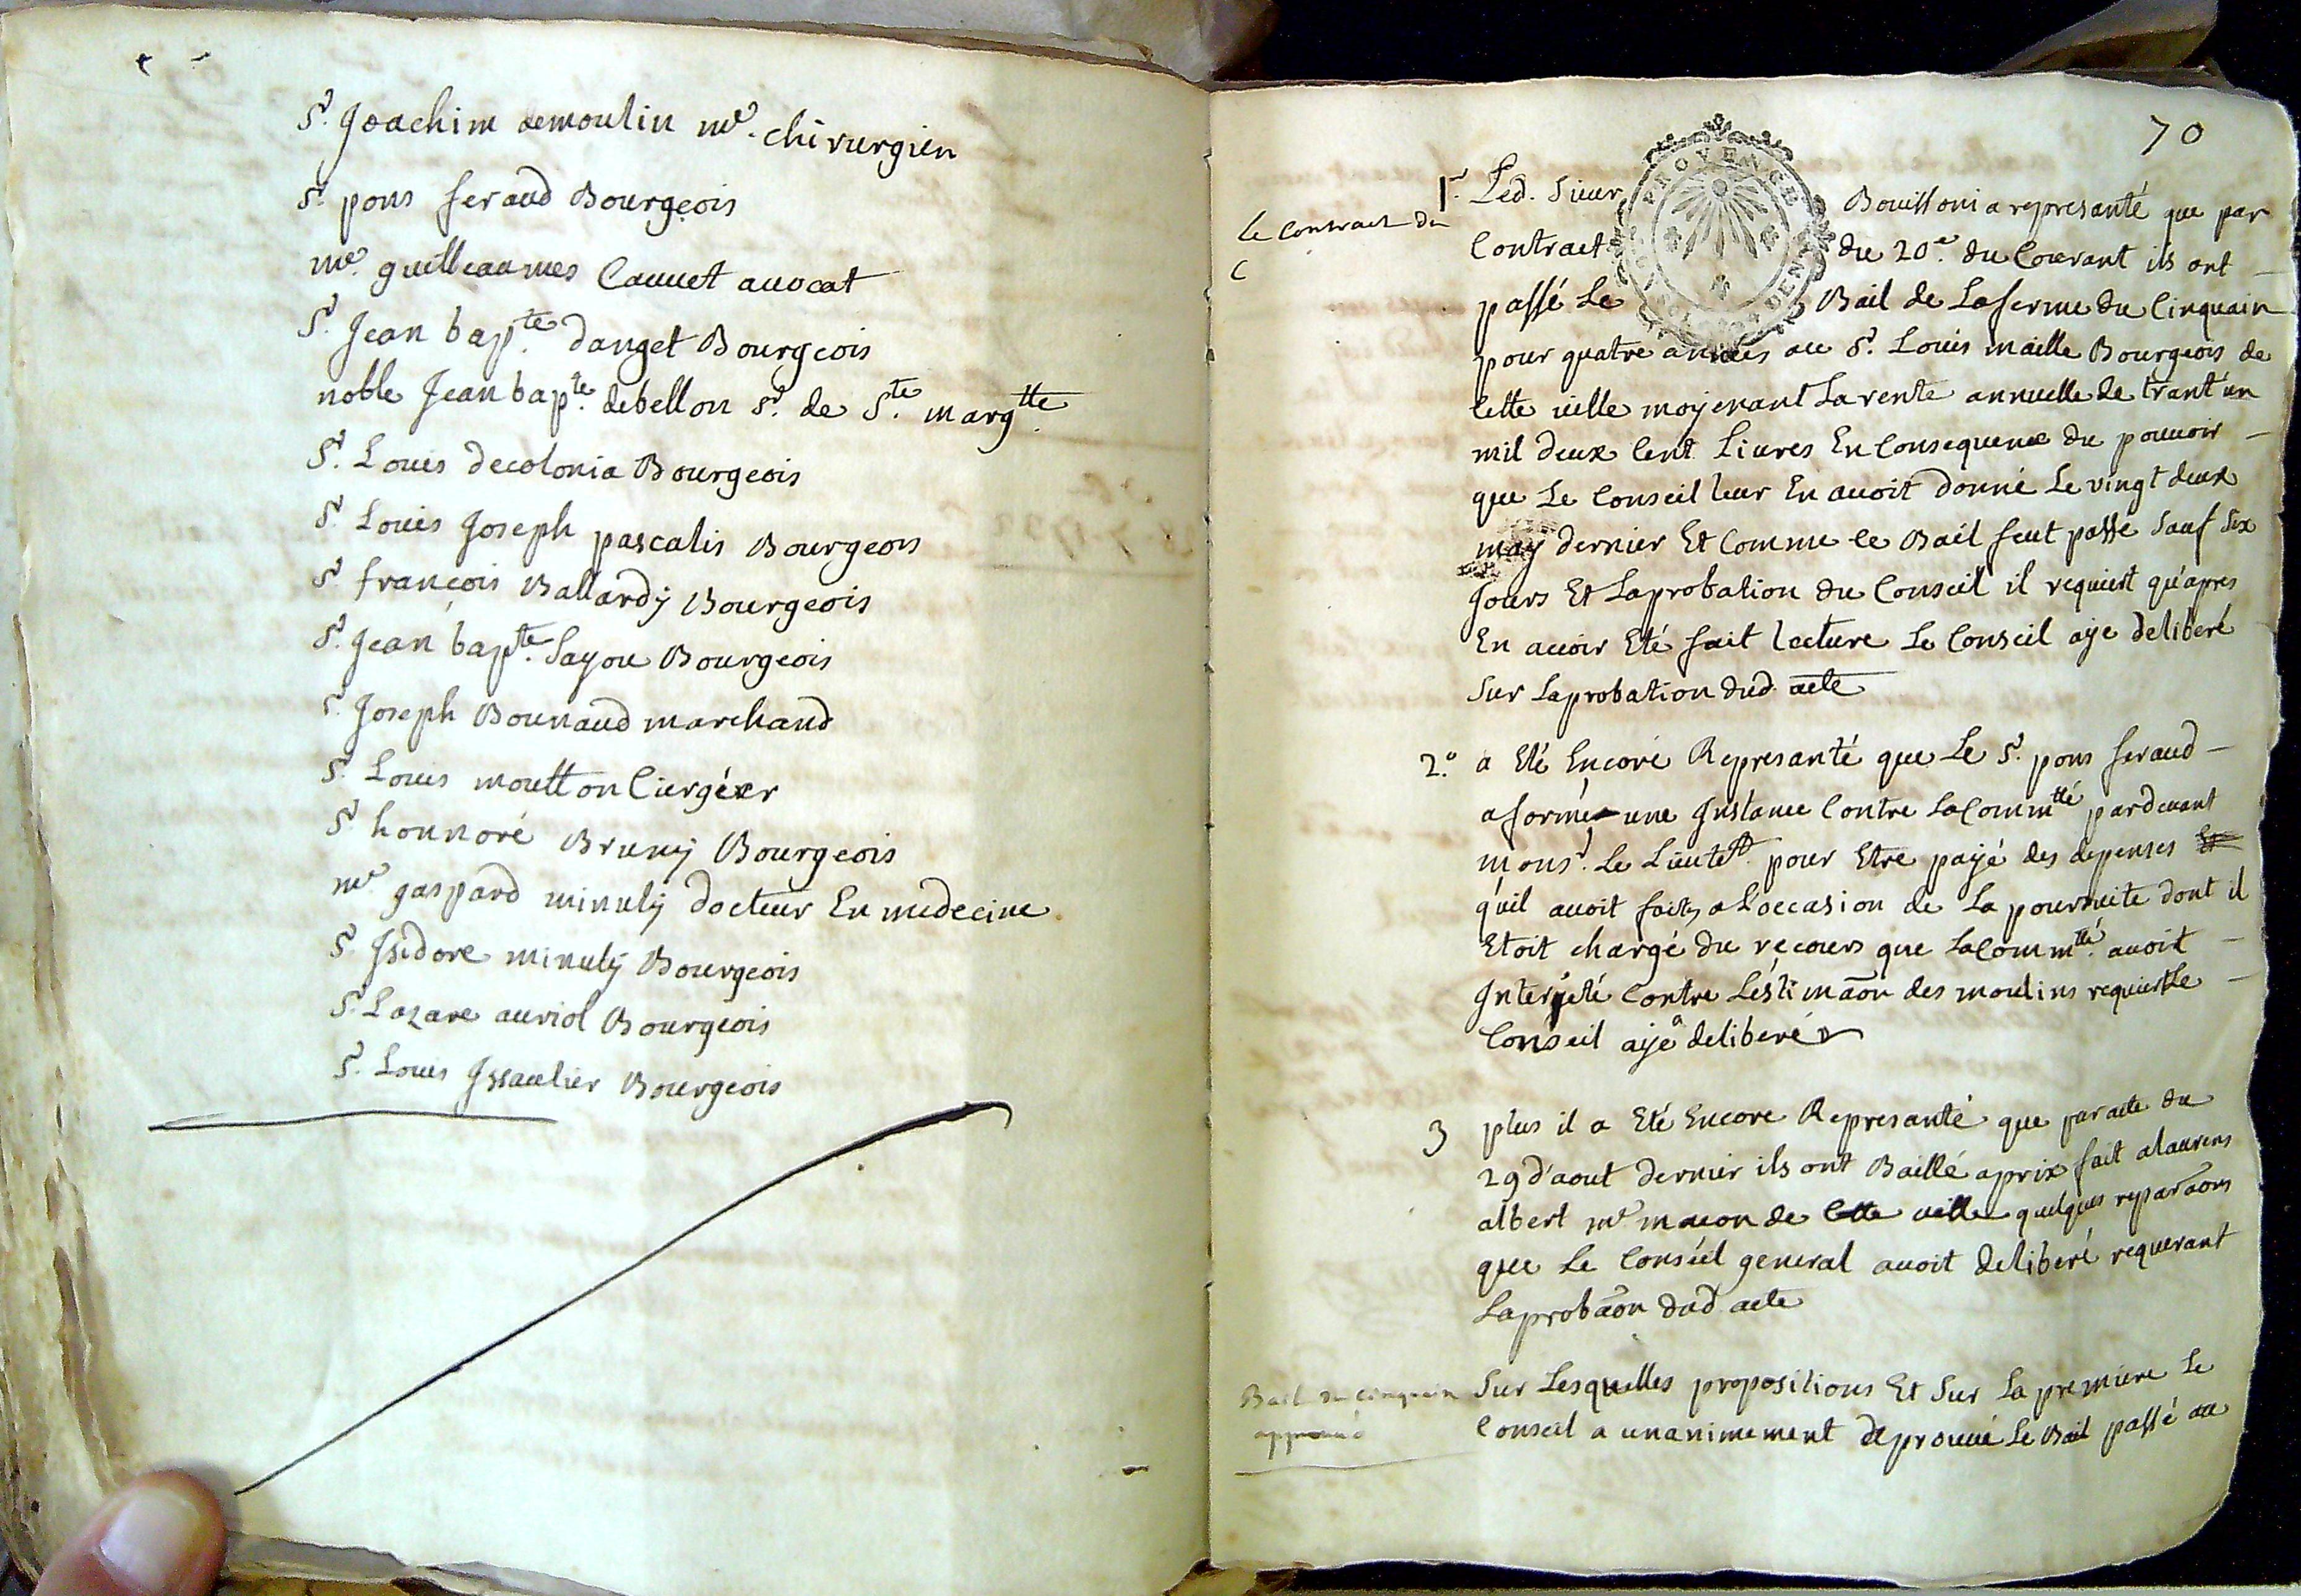 Sr. Joachim demoulin me. chirurgien
Sr. pons feraud Bourgeois
me. guilleaumes Cauvet avocat
Sr. Jean bapte. danget Bourgeois
noble Jean bapte. debellon Sr. de Ste. margtte.
Sr. Louis decolonia Bourgeois
Sr. Louis Joseph pascalis Bourgeois
Sr. françois Ballardy Bourgeois
Sr. Jean bapte. Sayou Bourgeois
Sr. Joseph Bounaud marchand
Sr. Louis moutton Ciergéer
Sr. honnoré Bruny Bourgeois
me gaspard minuty docteur En medecine
Sr. Isidore minuty Bourgeois
Sr. Lazare auriol Bourgeois
Sr. Louis Issautier Bourgeois
70
PROVENCE
Le Contract du
C
1r. Led. Sieur Bouilloni a represanté que par
Contract du 20e. du Courant ils ont
passé Le Bail de Laferme du Cinquain
pour quatre années au Sr. Louis maille Bourgeois de
Cette ville moyenant La rente annuelle de trant'un
mil deux Cent Livres En Consequence du pouvoir
que Le Conseil leur En avoit donné Le vingt deux
may dernier Et Comme Ce Bail feut passé sauf dix
Jours Et Laprobation du Conseil il requiert qu'apres
En avoir Eté fait lecture Le Conseil aye deliberé
Sur Laprobation dud. acte
2.o a Eté Encore Represanté que Le Sr. pons feraud
a formé une Instance Contre LaCommtté pardevant
monsr. Le Lieutet. pour Etre payé des depenses
qu'il avoit faites a L'occasion de La poursuite dont il
Etoit chargé du recours que LaCommtté. avoit
Interjeté Contre L'estimaõn des moulins requiert Le
Conseil aye a deliberé
3 plus il a Eté Encore Represanté que par acte du
29 d'aout dernier ils ont Baillé a prix fait a laurens
albert me macon de Cette ville quelques reparaõns
que Le Conseil general avoit deliberé requerant
Laprobaõn dud acte
Bail du cinquain
approuvé
Sur Lesquelles propositions Et Sur La premiere Le
Conseil a unanimement aprouvé Le Bail passé au